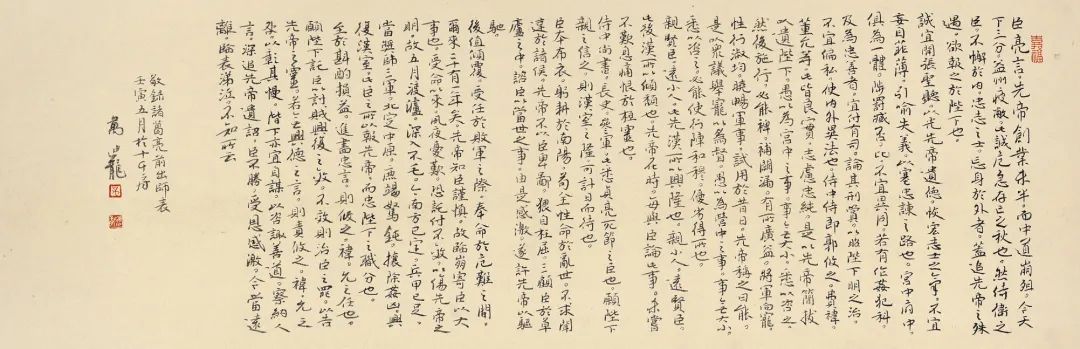 臣亮言。先帝創業未半。而中道崩殂。今天
下三分。益州疲敝。此誠危急存亡之秋也。然侍衛之
臣。不懈於內。忠志之士。忘身於外者。蓋追先帝之殊
遇。欲報之於陛下也。
誠宜開張聖聽。以光先帝遺德。恢宏志士之氣。不宜
妄自菲薄。引喻失義。以塞忠諫之路也。宮中府中。
俱為一體。陟罰臧否。不宜異同。若有作姦犯科。
及為忠善者。宜付有司。論其刑賞。以昭陛下明之治。
不宜偏私。使內外異法也。侍中侍郎郭攸之。費禕。
董允等。此皆良實。志慮忠純。是以先帝簡拔
以遺陛下。愚以為宮中之事。事無大小。悉以咨之。
然後施行。必能裨補闕漏。有所廣益。將軍向寵。
性行淑均。曉暢軍事。試用於昔日。先帝稱之曰能。
是以眾議舉寵以為督。愚以為營中之事。事無大小。
悉以咨之。必能使行陣和穆。優劣得所也。
親賢臣。遠小人。此先漢所以興隆也。親小人。遠賢臣。
此後漢所以傾頹也。先帝在時。每與臣論此事。未嘗
不歎息痛恨於桓靈也。
侍中尚書。長史。參軍。此悉貞亮死節之臣也。願陛下
親之信之。則漢室之隆。可計日而待也。
臣本布衣。躬耕於南陽。苟全性命於亂世。不求聞
達於諸侯。先帝不以臣卑鄙。猥自枉屈。三顧臣於草
廬之中。諮臣以當世之事。由是感激。遂許先帝以驅
馳。
後值傾覆。受任於敗軍之際。奉命於危難之間。
爾來二十有一年矣。先帝知臣謹慎。故臨崩寄臣以大
事也。受命以來。夙夜憂歎。恐託付不效。以傷先帝之
明。故五月渡瀘。深入不毛。今南方已定。兵甲已足。
當獎帥三軍。北定中原。庶竭駑鈍。攘除姦凶。興
復漢室。此臣之所以報先帝。而忠陛下之職分也。
至於斟酌損益。進盡忠言。則攸之。禕。允之任也。
願陛下託臣以討賊興復之效。不效則治臣之罪。以告
先帝之靈。若無興德之言。則責攸之。禕。允之
咎。以彰其慢。陛下亦宜自謀。以咨諏善道。察納
言。深追先帝遺詔。臣不勝。受恩感激。今當遠
離。臨表涕泣。不知所云
敬錄諸葛亮前出師表
壬寅五月於
龍